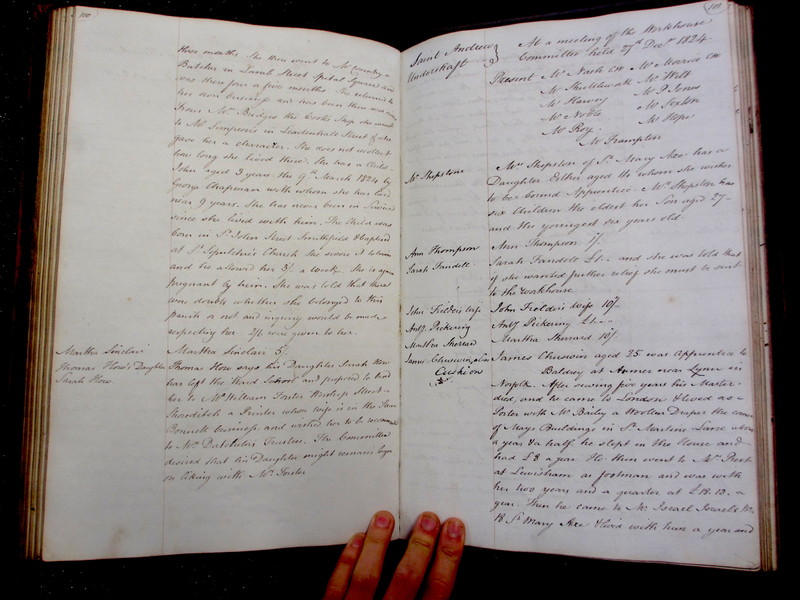 100
three months. She then went to Mr Country a
Butcher in Lamb Street Spital Square and
was there four or five months. She returned to
her own business and has been there
from Mr Bridges the Cooks Shop she went
to Mr Simpson's in Leadenhall Street & who
gave her a character. She does not recollect
how long she lived there. She has a Child
John aged 3 years the 9th March 1824 by
George Chapman with whom she has lived
near 9 years. She has never been in Service
since she lived with him. The Child was
born in St John Street Smithfield & baptized
at St Sepulchre's Church She swore it to him
and he allowed her 3/ a week. She is again
pregnant by him. She was told that there
were doubts whether she belonged to this
parish or not and inquiry would be made
respecting her. 2/6 were given to her.
Martha Sinclair
Martha Sinclair 5/.
Thomas How's Daughter
Sarah How
Thomas How says his Daughter Sarah How
has left the Ward School and proposed to bind
her to Mr William Foster Worship Street
Shoreditch a Printer whose wife is in the Straw
Bonnett business and wished her to be recommended
to Mr Datchelor's Trustees. The Committee
desired that his Daughter might remain longer
on liking with Mr Foster
101
Saint Andrew
Undershaft
At a meeting of the Workhouse
Committee held 27th Decr 1824.
Present Mr Nash CW Mr Morris CW
Mr Shuttleworth Mr Witt
Mr Harvey Mr P. Jones
Mr Notts Mr Sexton
Mr Roy. Mr Hope
Mr Frampton
Mr Shepstone
Mrs Shepston of St Mary Axe has a
Daughter Esther aged 14 whom she wishes
to be bound Apprentice. Mrs Shepston has
six Children the eldest her Son aged 27
and the youngest six years old.
Ann Thompson
Ann Thompson 7/.
Sarah Fandell
Sarah Fandell £1.- and she was told that
if she wanted further relief she must be sent
to the workhouse
John Fielder's wife
John Fielder's wife 10/-
Anty. Pickering
Anty Pickering £1.-
Martha Sherrard
Martha Sherrard 10/.
James Chuswin alias
Cushion
James Chuswin aged 25 was Apprentice to
Baldwy at Anmer near Lynn in
Norfolk. After serving five years his Master
died, and he came to London & lived as
Porter with Mr Baily a Woollen Draper the corner
of Mays Buildings in St Martins Lane about
a year & a half he slept in the House and
had £8 a year. He then went to Mrs
at Lewisham as footman and was with
her two years and a quarter at £18.18. a
year. Then he came to Mr Israel Israel's No
18 St Mary Axe & lived with him a year and